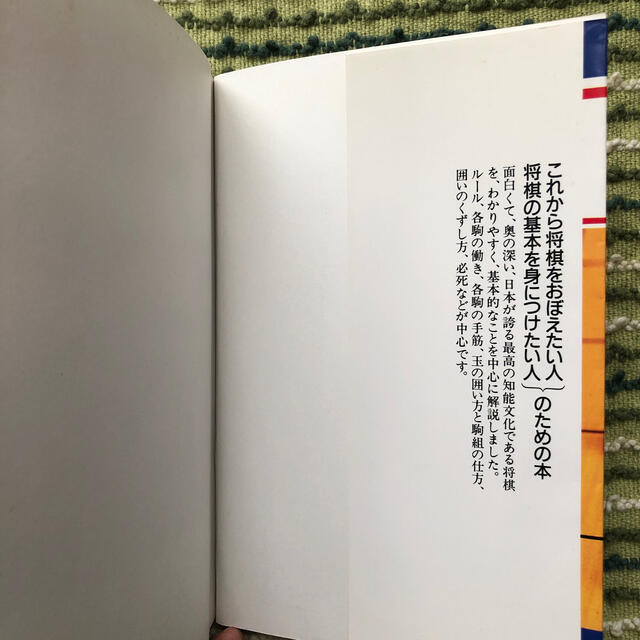 これから将棋をおぼえたい人
将棋の基本を身につけたい人
のための本
面白くて、奥の深い、日本が誇る最高の知能文化である将棋
を、わかりやすく、基本的なことを中心に解説しました。
ルール、各駒の働き、各駒の手筋、玉の囲い方と駒組の仕方、
囲いのくずし方、必死などが中心です。